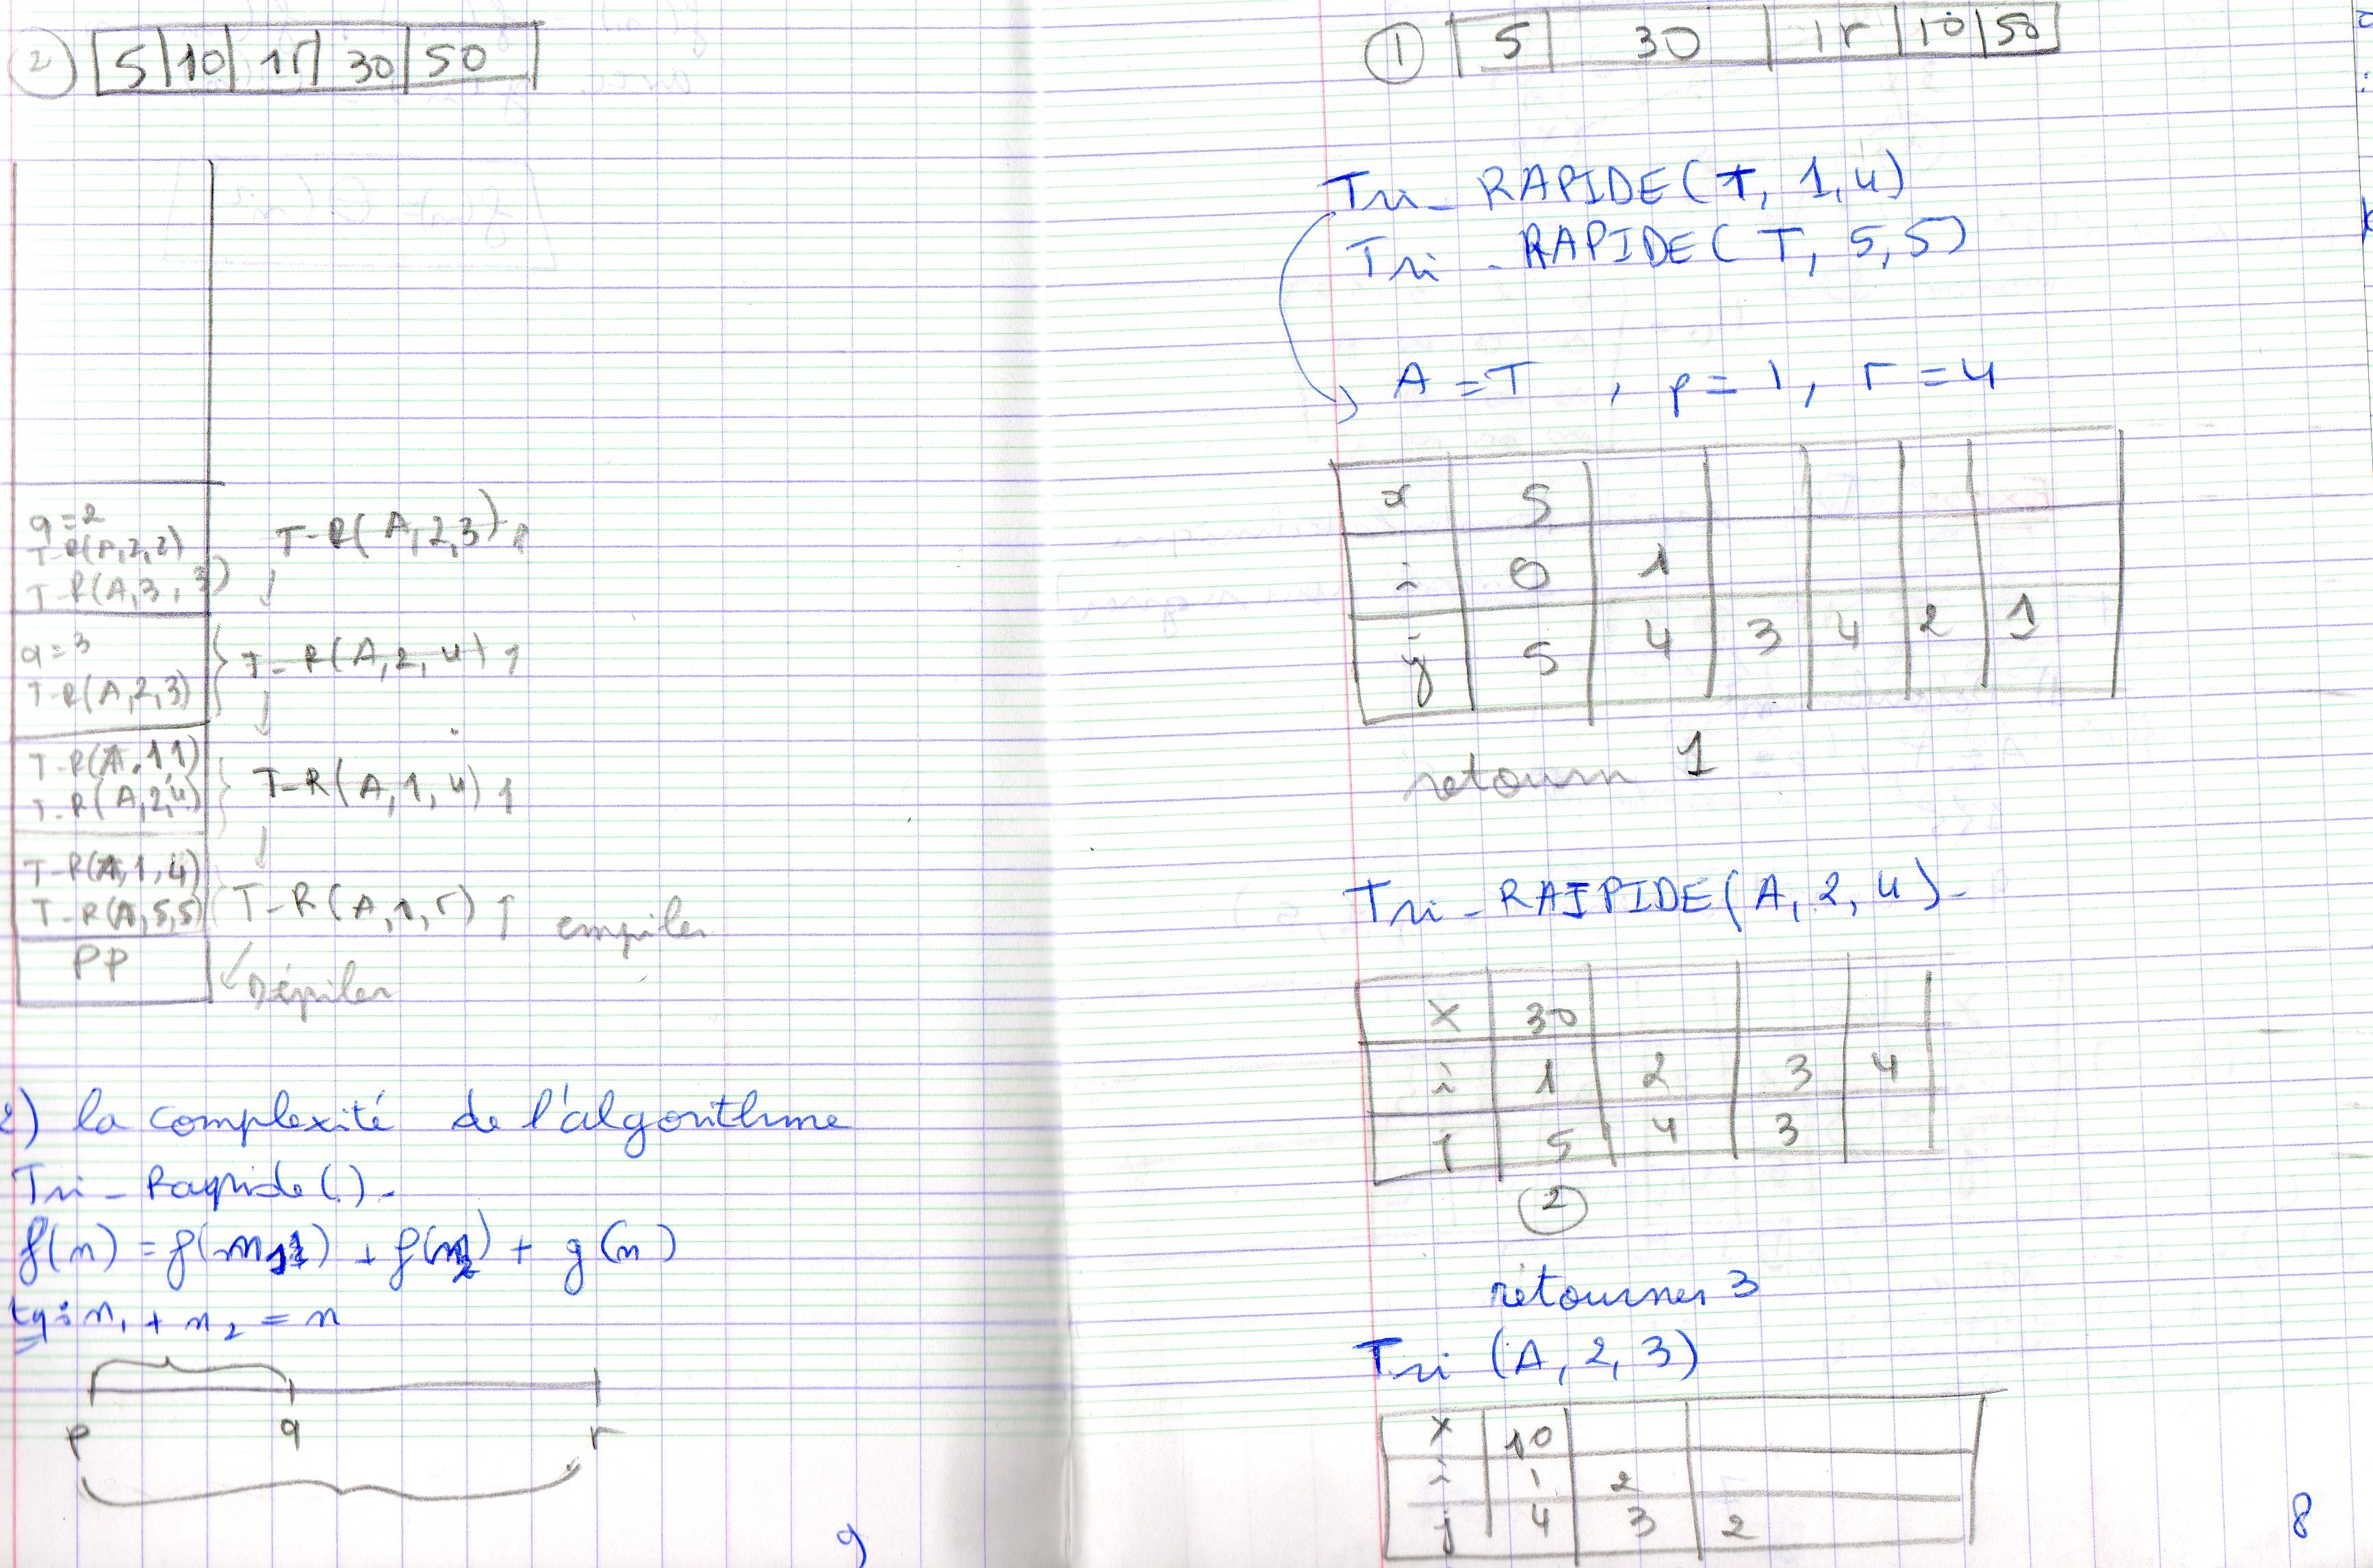 ② 5 | 10 | 15 | 30 | 50
q=2
T-R(A,2,2)
T-R(A,3,3)
T-R(A,2,3) ↑
↓
q=3
T-R(A,2,3)
T-R(A,2,4) ↑
↓
T-R(A,1,1)
T-R(A,2,4)
T-R(A,1,4) ↑
↓
T-R(A,1,4)
T-R(A,5,5)
T-R(A,1,5) ↑ empiler
PP
↙ Dépiler
2) la complexité de l'algorithme
Tri-Rapide(.)-
f(n) = f(n1) + f(n2) + g(n)
tq: n1 + n2 = n
p q r
9
① 5 | 30 | 15 | 10 | 50
Tri-RAPIDE(T, 1, 4)
Tri-RAPIDE(T, 5, 5)
A = T , p = 1, r = 4
x 5
i 0 1
j 5 4 3 4 2 1
retourn 1
Tri-RAIPIDE(A, 2, 4)-
x 30
i 1 2 3 4
j 5 4 3
②
retourner 3
Tri (A, 2, 3)
x 10
i 1 2
j 4 3 2
8